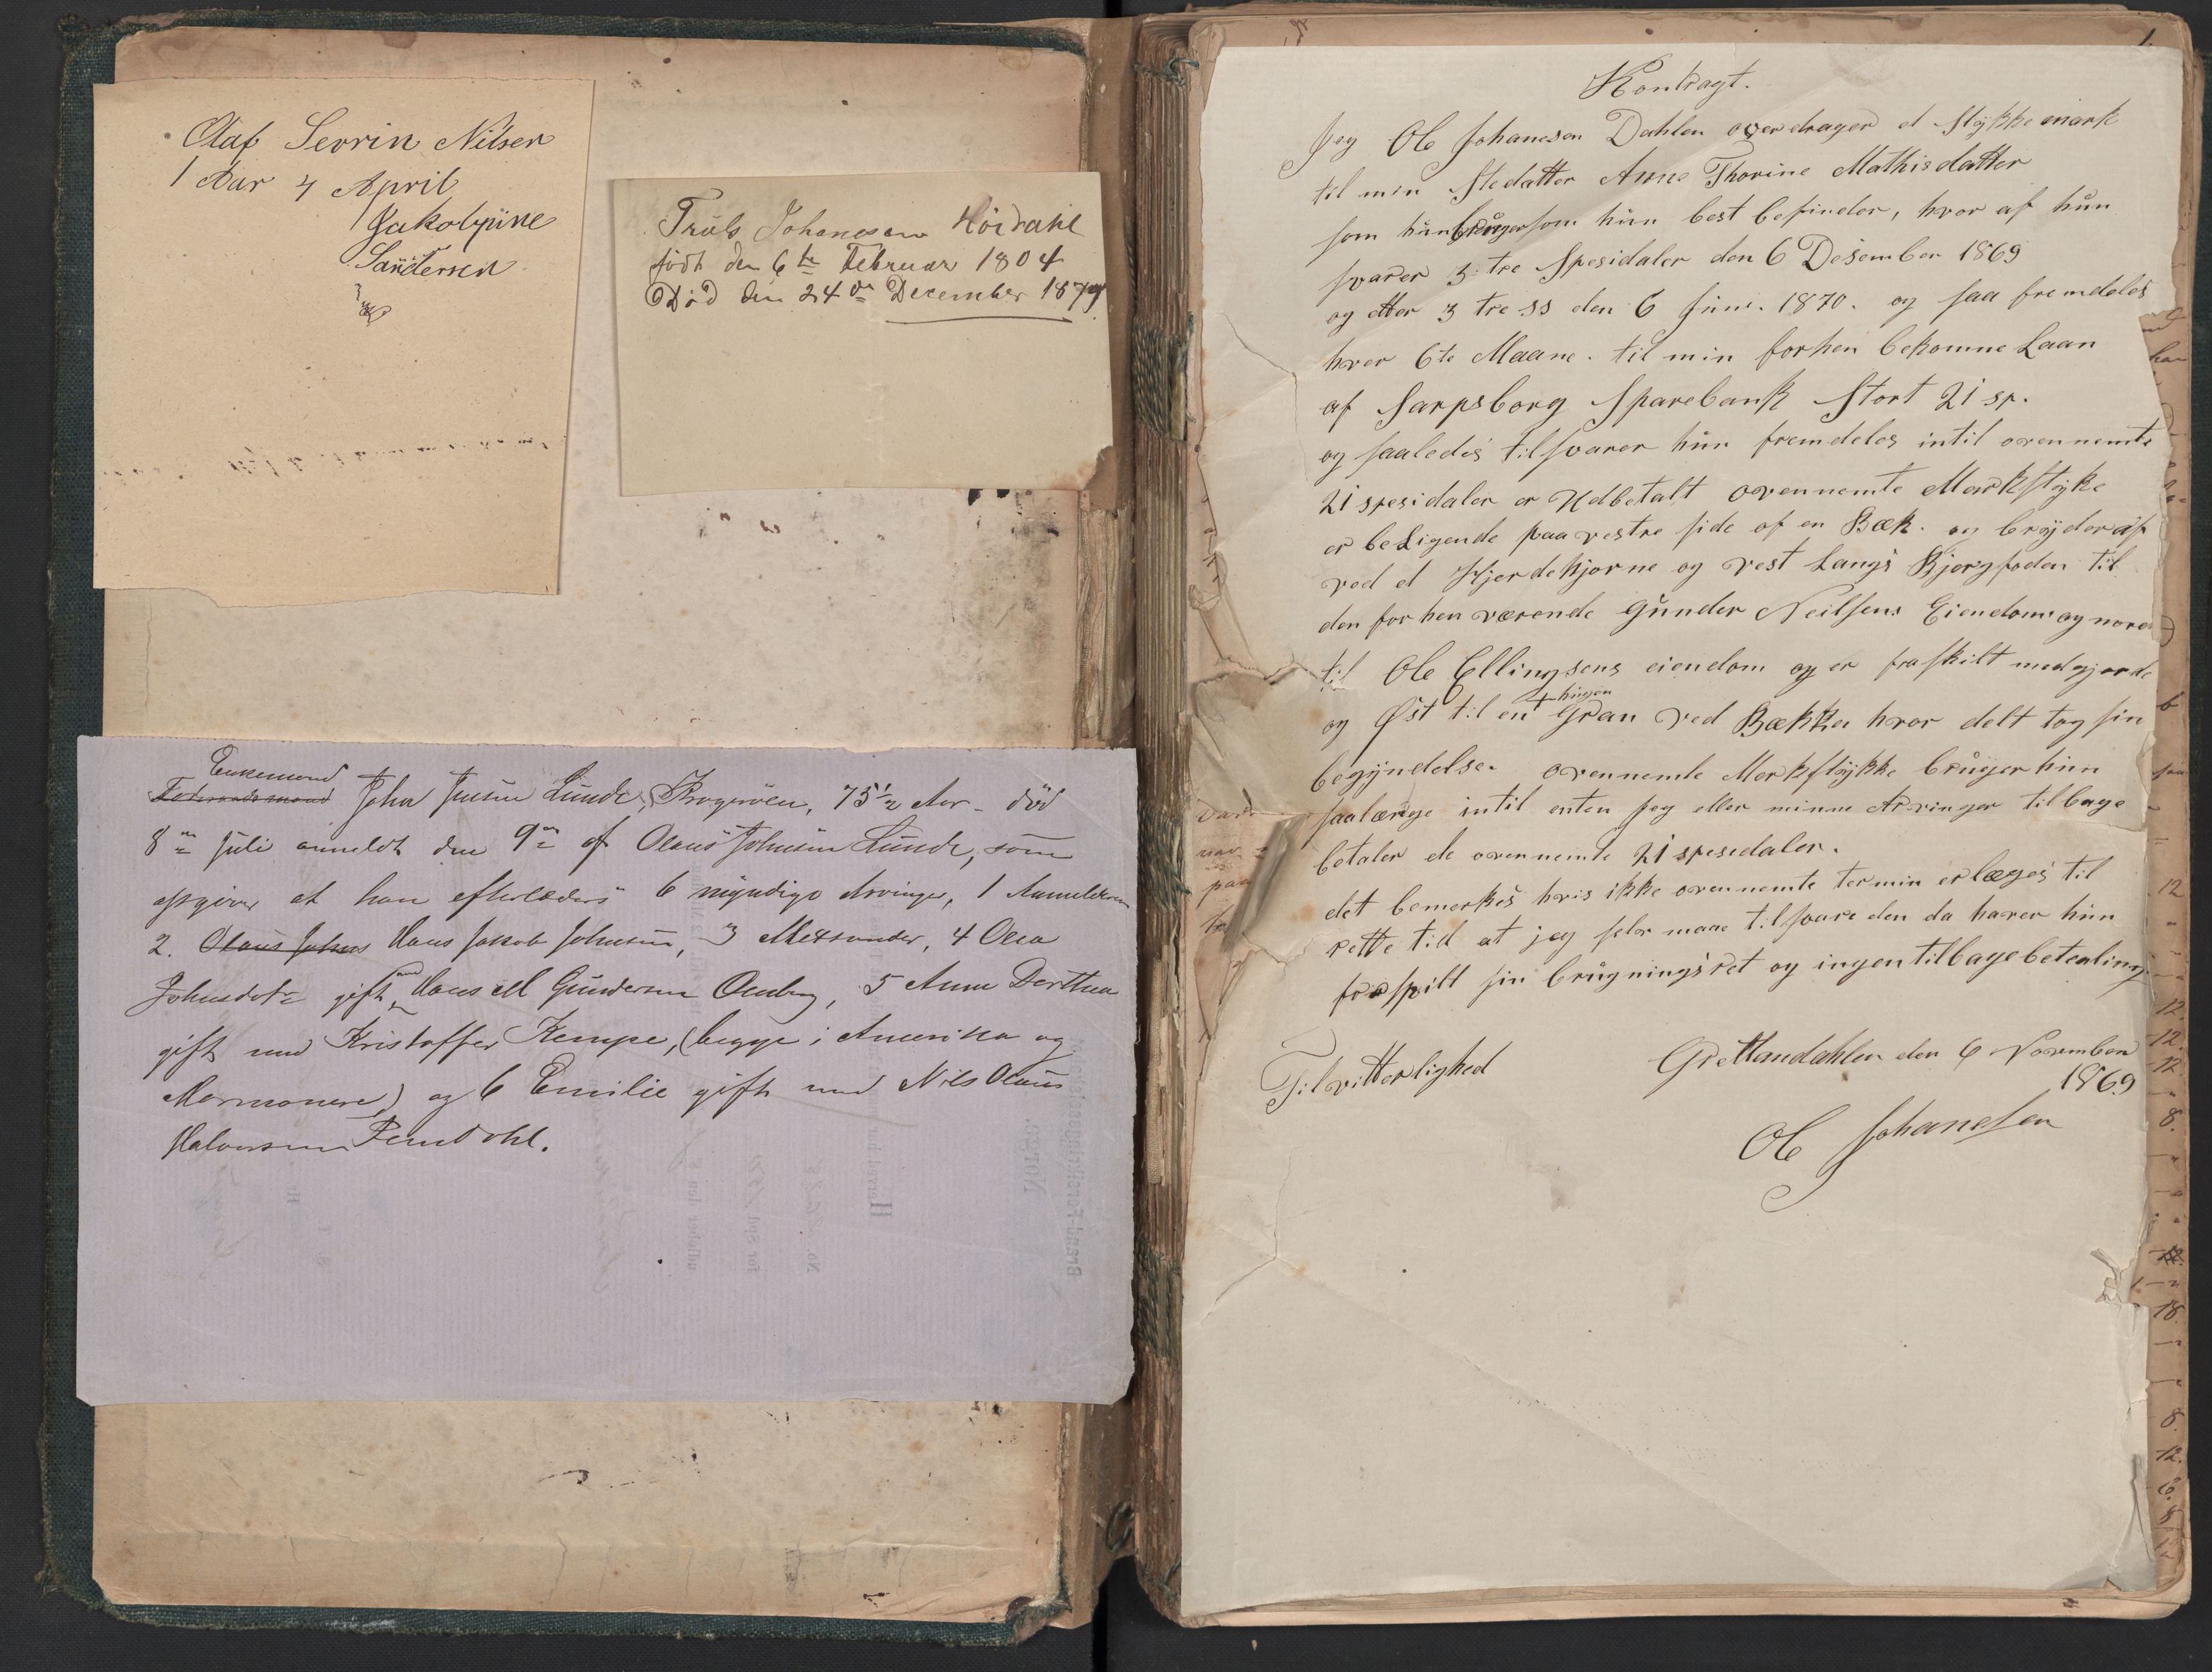 Olaf Sevrin Nilsen
1 Aar 4 April
Jakobpine
Sandersen
Truls Johanesen Hördahl
födt den 6te Februar 1804
Död den 24de December 1879
Enkemand
Gaardmand John Jensen Lunde, Krogeröen, 75½ Aar - död
8de Juli anmeldt den 9de af Olaus Johnsen Lunde, som
opgiver at han efterlader 6 myndige Arvinger, 1 Anmelderen
2. Olaus Johns Hans Jakob Johnsen, 3 Alexsander, 4 Olea
Johnsdtr gift med Hans M Gundersen Omberg, 5 Anne Dorthea
gift med Kristoffer Kempe, (begge i Amerika og
Mormonere) og 6 Emilie gift med Nils Olaus
Halvorsen
1.
Kontragt.
Jeg Ole Johanesen Dahlen overdrager et stykke mark
til min Stedatter Anne Thorine Mathisdatter
som hun bruger som hun best befinder, hvor af hun
svarer 3 tre Spesidaler den 6 Desember 1869
og etter 3 tre ss den 6 Juni. 1870. og saa fremdeles
hver 6te Maane. til min forhen bekomne Laan
af Sarpsborg Sparebank Stort 21 sp.
og saaledes tilsvarer hun fremdeles intil ovennemte
21 spesidaler er Udbetalt ovennemte Markstyke
er beligende paa vestre side af en Bæk. og bryder af
ved et Hjerdehjorne og vest Langs Bjergfoden til
den forhen værende Gunder Neilsens Eiendom og nord
til Ole Ellingsens eiendom og er fraskilt med gjerde
og Øst til en + Gran ved Bækken hvor delt tog sin
begyndelse. ovennemte Merkstykke bruger hun
saalænge intil enten jeg eller minne Arvinger tilbage
betaler de ovennemte 21 spesedaler.
det bemerkes hvis ikke ovennemte termin erlæges til
rette tid at jeg selv maae tilsvare den da haver hun
forspilt sin brugningsret og ingen tilbagebetaling.
Til vitterlighed
Grettandahlen den 6 November
1869
Ole Johanesen